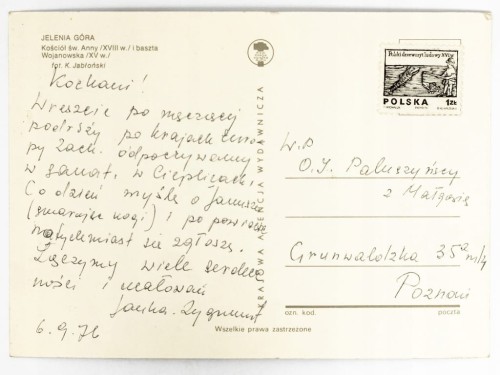 JELENIA GÓRA
Kościół św. Anny /XVIII w./ i baszta
Wojanowska /XV w./
fot. K. Jabłoński
Kochani!
Wreszcie po męczącej
podróży po krajach Euro
py Zach. odpoczywamy
w sanat. w Cieplicach.
Co dzień myślę o Janusze
(smarując nogi) i po powrocie
natychmiast się zgłoszę.
Łączymy wiele serdecz
ności i ucałowań
Janka. Zygmunt
6.9.76
KRAJOWA AGENCJA WYDAWNICZA
Polski drzeworyt ludowy XVI w.
POLSKA 1 ZŁ
W.P
O.J. Paluszyńscy
z Małgosią
Grunwaldzka 35a m/4
Poznań
ozn. kod. poczta
Wszelkie prawa zastrzeżone